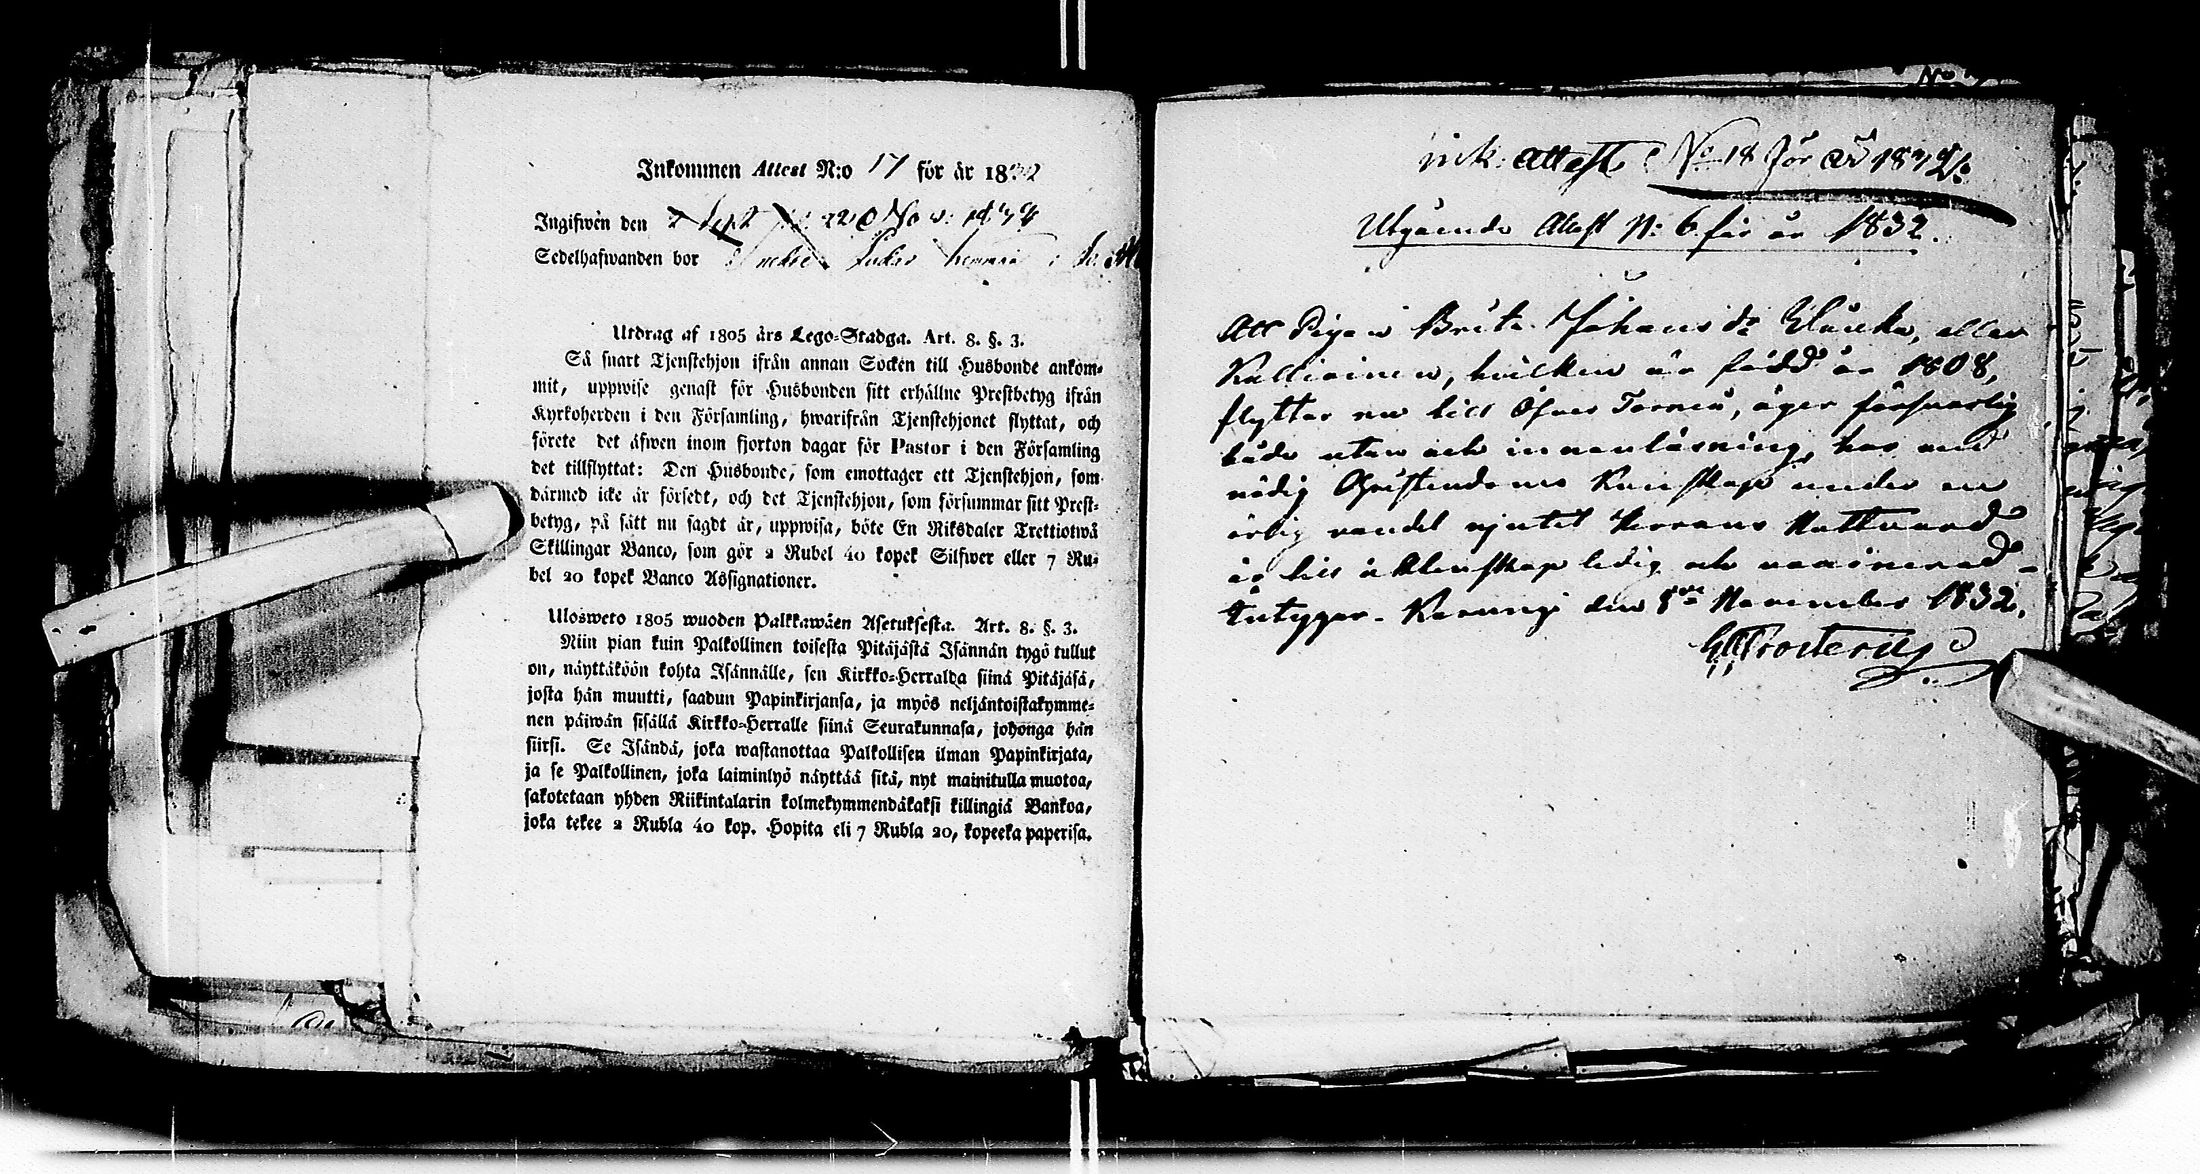 Inkommen Attest N:o 17 för år 1832
Ingifwen den 22 Nov: 1832
Sedelhafwanden bor
Utdrag af 1805 års Lego-Stadga. Art. 8. §. 3.
Så snart Tjenstehjon ifrån annan Socken till Husbonde ankom-
mit, uppwise genast för Husbonden sitt erhållne Prestbetyg ifrån
Kyrkoherden i den Församling, hwarifrån Tjenstehjonet flyttat, och
förete det äfwen inom fjorton dagar för Pastor i den Församling
det tillflyttat: Den Husbonde, som emottager ett Tjenstehjon, som
därmed icke är försedt, och det Tjenstehjon, som försummar sitt Prest-
betyg, på sätt nu sagdt är, uppwisa, böte En Riksdaler Trettiotwå
Skillingar Banco, som gör 2 Rubel 40 kopek Silfwer eller 7 Ru-
bel 20 kopek Banco Assignationer.
Ulosweto 1805 wuoden Palkkawäen Asetuksesta. Art. 8. §. 3.
Niin pian kuin Palkollinen toisesta Pitäjästä Isännän tygö tullut
on, näyttäköön kohta Isännälle, sen Kirkko-Herralda siinä Pitäjäsä,
josta hän muutti, saadun Papinkirjansa, ja myös neljäntoistakymme-
nen päiwän sisällä Kirkko-Herralle siinä Seurakunnasa, johonga hän
siirsi. Se Isändä, joka wastanottaa Palkollisen ilman Papinkirjata,
ja se Palkollinen, joka laiminlyö näyttää sitä, nyt mainitulla muotoa,
sakotetaan yhden Riikintalarin kolmekymmendäkaksi killingiä Bankoa,
joka tekee 2 Rubla 40 kop. Hopita eli 7 Rubla 20, kopeeka paperisa.
ink: Attest No 18 för år 1832.
Utgående Attest N: 6 för år 1832.
Att Pigan Brita Johans dr eller
Kallioinen, hvilken är född år 1808,
flyttar nu till Öfver Torneå, äger försvarlig
både utan och innanläsning, har med
nödig Christendoms Kunskap under en
ärlig vandel njutit Herrans Nattvard
är till äktenskap ledig och vaccinerad
Intygar. Karungi den 8de November 1832.
Frosterus